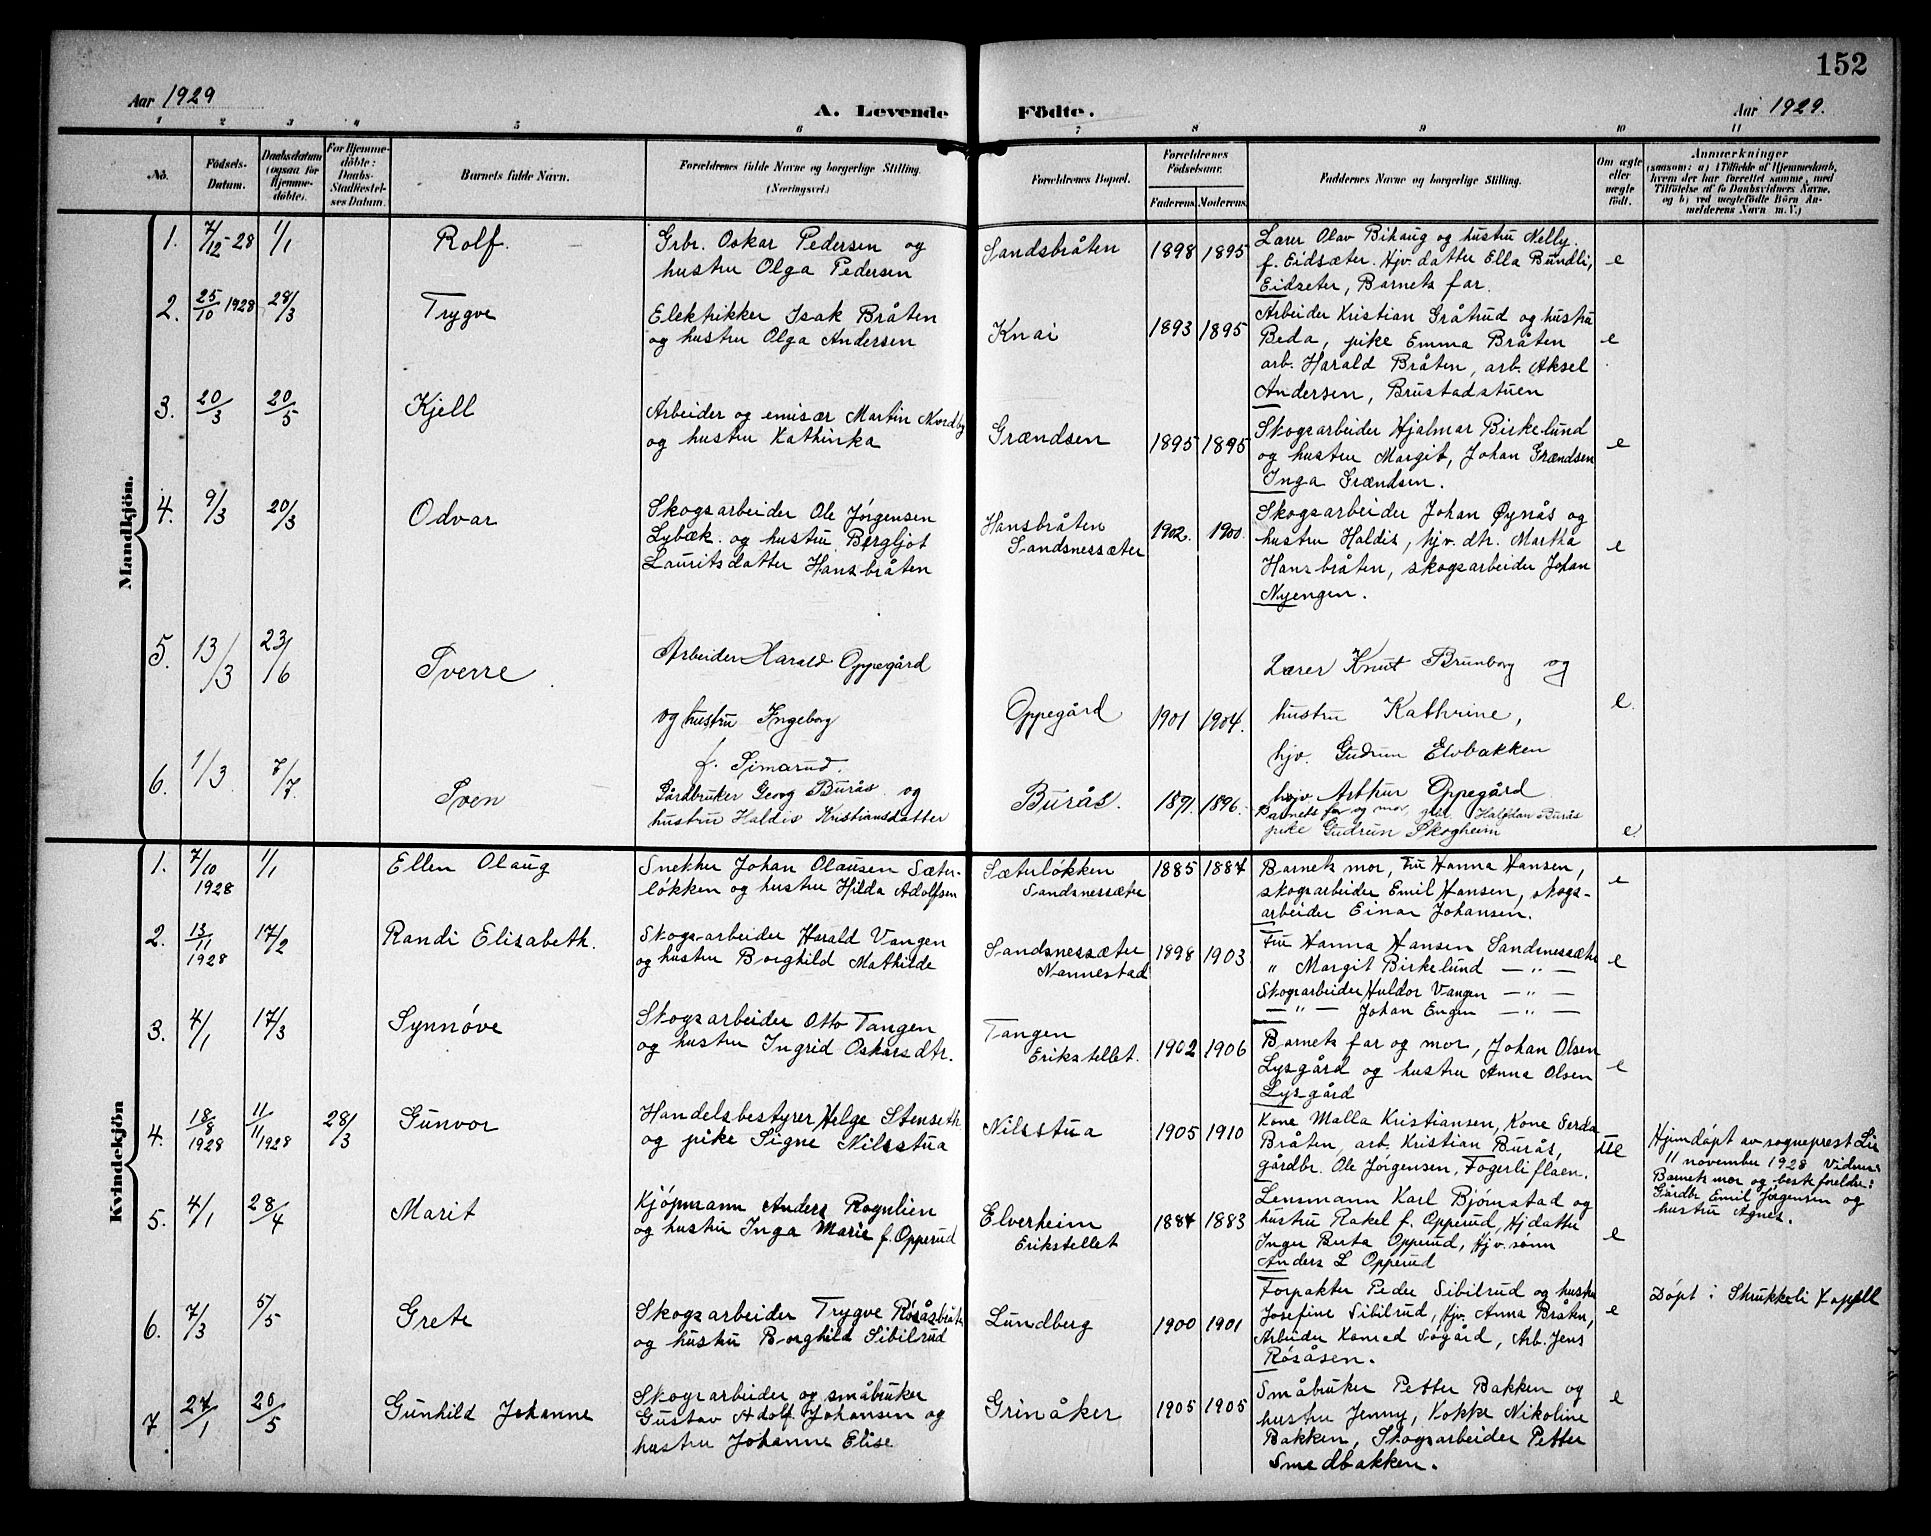 152
Aar 1929
A. Levende Födte.
Aar 1929.
1 2 3 4 5 6 7 8 9 10 11
No.
Födsels-
Datum.
Daabsdatum
(ogsaa for
Hjemme-
döbte).
For Hjemme-
döbte:
Daabs-
Stadfæstel-
ses Datum.
Barnets fulde Navn.
Forældrenes fulde Navne og borgerlige Stilling.
(Næringsvei.)
Forældrenes Bopæl.
Forældrenes
Födselsaar.
Faderens. Moderens.
Faddernes Navne og borgerlige Stilling.
Om ægte
eller
uægte
födt.
Anmærkninger
(saasom: a) i Tilfælde af Hjemmedaab,
hvem der har forrettet samme, med
Tilföielse af to Daabsvidners Navne,
og b) ved uægtefödte Börn An-
melderens Navn m. V.)
Mandkjön.
1. 7/12-28 1/1 Rolf.
Grbr. Oskar Pedersen og
hustru Olga Pedersen
Sandsbråten 1898 1895
Lærer Olav Bihaug og hustru Nelly
f. Eidsæter. Hjv. datter Ella Bundli,
Eidseter, Barnets far.
e
2. 25/10 1928 28/3 Trygve
Elektrikker Isak Bråten
og hustru Olga Andersen
Knai 1893 1895
Arbeider Kristian Gråtrud og hustru
Beda, pike Emma Bråten
arb. Harald Bråten, arb. Aksel
Andersen, Brustadstuen
e
3. 20/3 20/5 Kjell
Arbeider og emisær Martin Nordby
og hustru Kathinka
Grændsen 1895 1895
Skogsarbeider Hjalmar Birkelund
og hustru Margit, Johan Grændsen
Inga Grændsen.
e
4. 9/3 20/3 Odvar
Skogsarbeider Ole Jørgensen
Lybæk. og hustru Bergljot
Lauritsdatter Hansbråten
Hansbråten
Sandsnessæter
1902. 1900.
Skogsarbeider Johan Øynås og
hustru Haldis, hjv. dtr. Martha
Hansbråten, skogsarbeider Johan
Nyengen.
e
5. 13/3 23/6 Sverre
Arbeider Harald Oppegård
og hustru Ingeborg
f. Simarud.
Oppegård 1901 1904.
Lærer Knut Brunborg og
hustru Kathrine,
hjv. Gudrun Elvbakken
hjv Arthur Oppegård
e.
6. 1/3 7/7 Sven
Gårdbruker Georg Burås og
hustru Haldis Kristiansdatter
Burås. 1891. 1896.
Barnets far og mor, gbr. Halfdan Burås
pike Gudrun Skogheim
e.
Kvindekjön
1. 7/10 1928 1/1 Ellen Olaug
Snekker Johan Olausen Sæter-
løkken og hustru Hilda Adolfsen
Sæterløkken
Sandsnessæter
1885 1887
Barnets mor, Fru Hanna Hansen,
skogsarbeider Emil Hansen, skogs-
arbeider Einar Johansen.
e
2. 13/11 1928 17/2 Randi Elisabeth.
Skogsarbeider Harald Vangen
og hustru Borghild Mathilde
Sandsnessæter
Nannestad
1898 1903
Fru Hanna Hansen Sandsnessæter
" Margit Birkelund — " —
Skogsarbeider Huldor Vangen — " —
— " — Johan Engen — " —
e
3. 4/1 17/3 Synnøve
Skogsarbeider Otto Tangen
og hustru Ingrid Oskarsdtr.
Tangen
Erikstellet.
1902 1906
Barnets far og mor, Johan Olsen
Lysgård og hustru Anna Olsen
Lysgård
e
4. 18/8 1928 11/11 1928 28/3 Gunvor
Handelsbestyrer Helge Stenseth
og pike Signe Nilsstua
Nilsstua 1905 1910
Kone Malla Kristiansen, Kone Gerda
Bråten, arb. Kristian Burås,
gårdbr. Ole Jørgensen, Fogerliflaen.
ue
Hjemdøpt av sogneprest Lie
11 november 1928 Vidner:
Barnets mor og besteforeldre:
Gårdbr Emil Jørgensen og
hustru Agnes.
5. 4/1 28/4 Marit
Kjøpmann Anders Rognlien
og hustru Inga Marie f. Opperud
Elverheim
Erikstellet
1884 1883
Lensmann Karl Bjørnstad og
hustru Rakel f. Opperud, Hj datter
Inger Berta Opperud, Hjv. sønn
Anders L Opperud
e
6. 7/3 5/5 Grete
Skogsarbeider Trygve Røsåsbråten
og hustru Borghild Sibilrud
Lundberg 1900 1901
Forpakter Peder Sibilrud og hustru
Josefine Sibilrud, Hjv. Anna Bråten,
Arbeider Konrad Søgård, Arb. Jens
Røsåsen.
e
Døpt i Skrukkeli Kapell
7 27/1 20/5 Gunhild Johanne
Skogsarbeider og småbruker
Gustav Adolf Johansen og
hustru Johanne Elise
Grinåker 1905 1905
Småbruker Petter Bakken og
hustru Jenny, Kokke Nikoline
Bakken, Skogsarbeider Petter
Smedbakken.
e